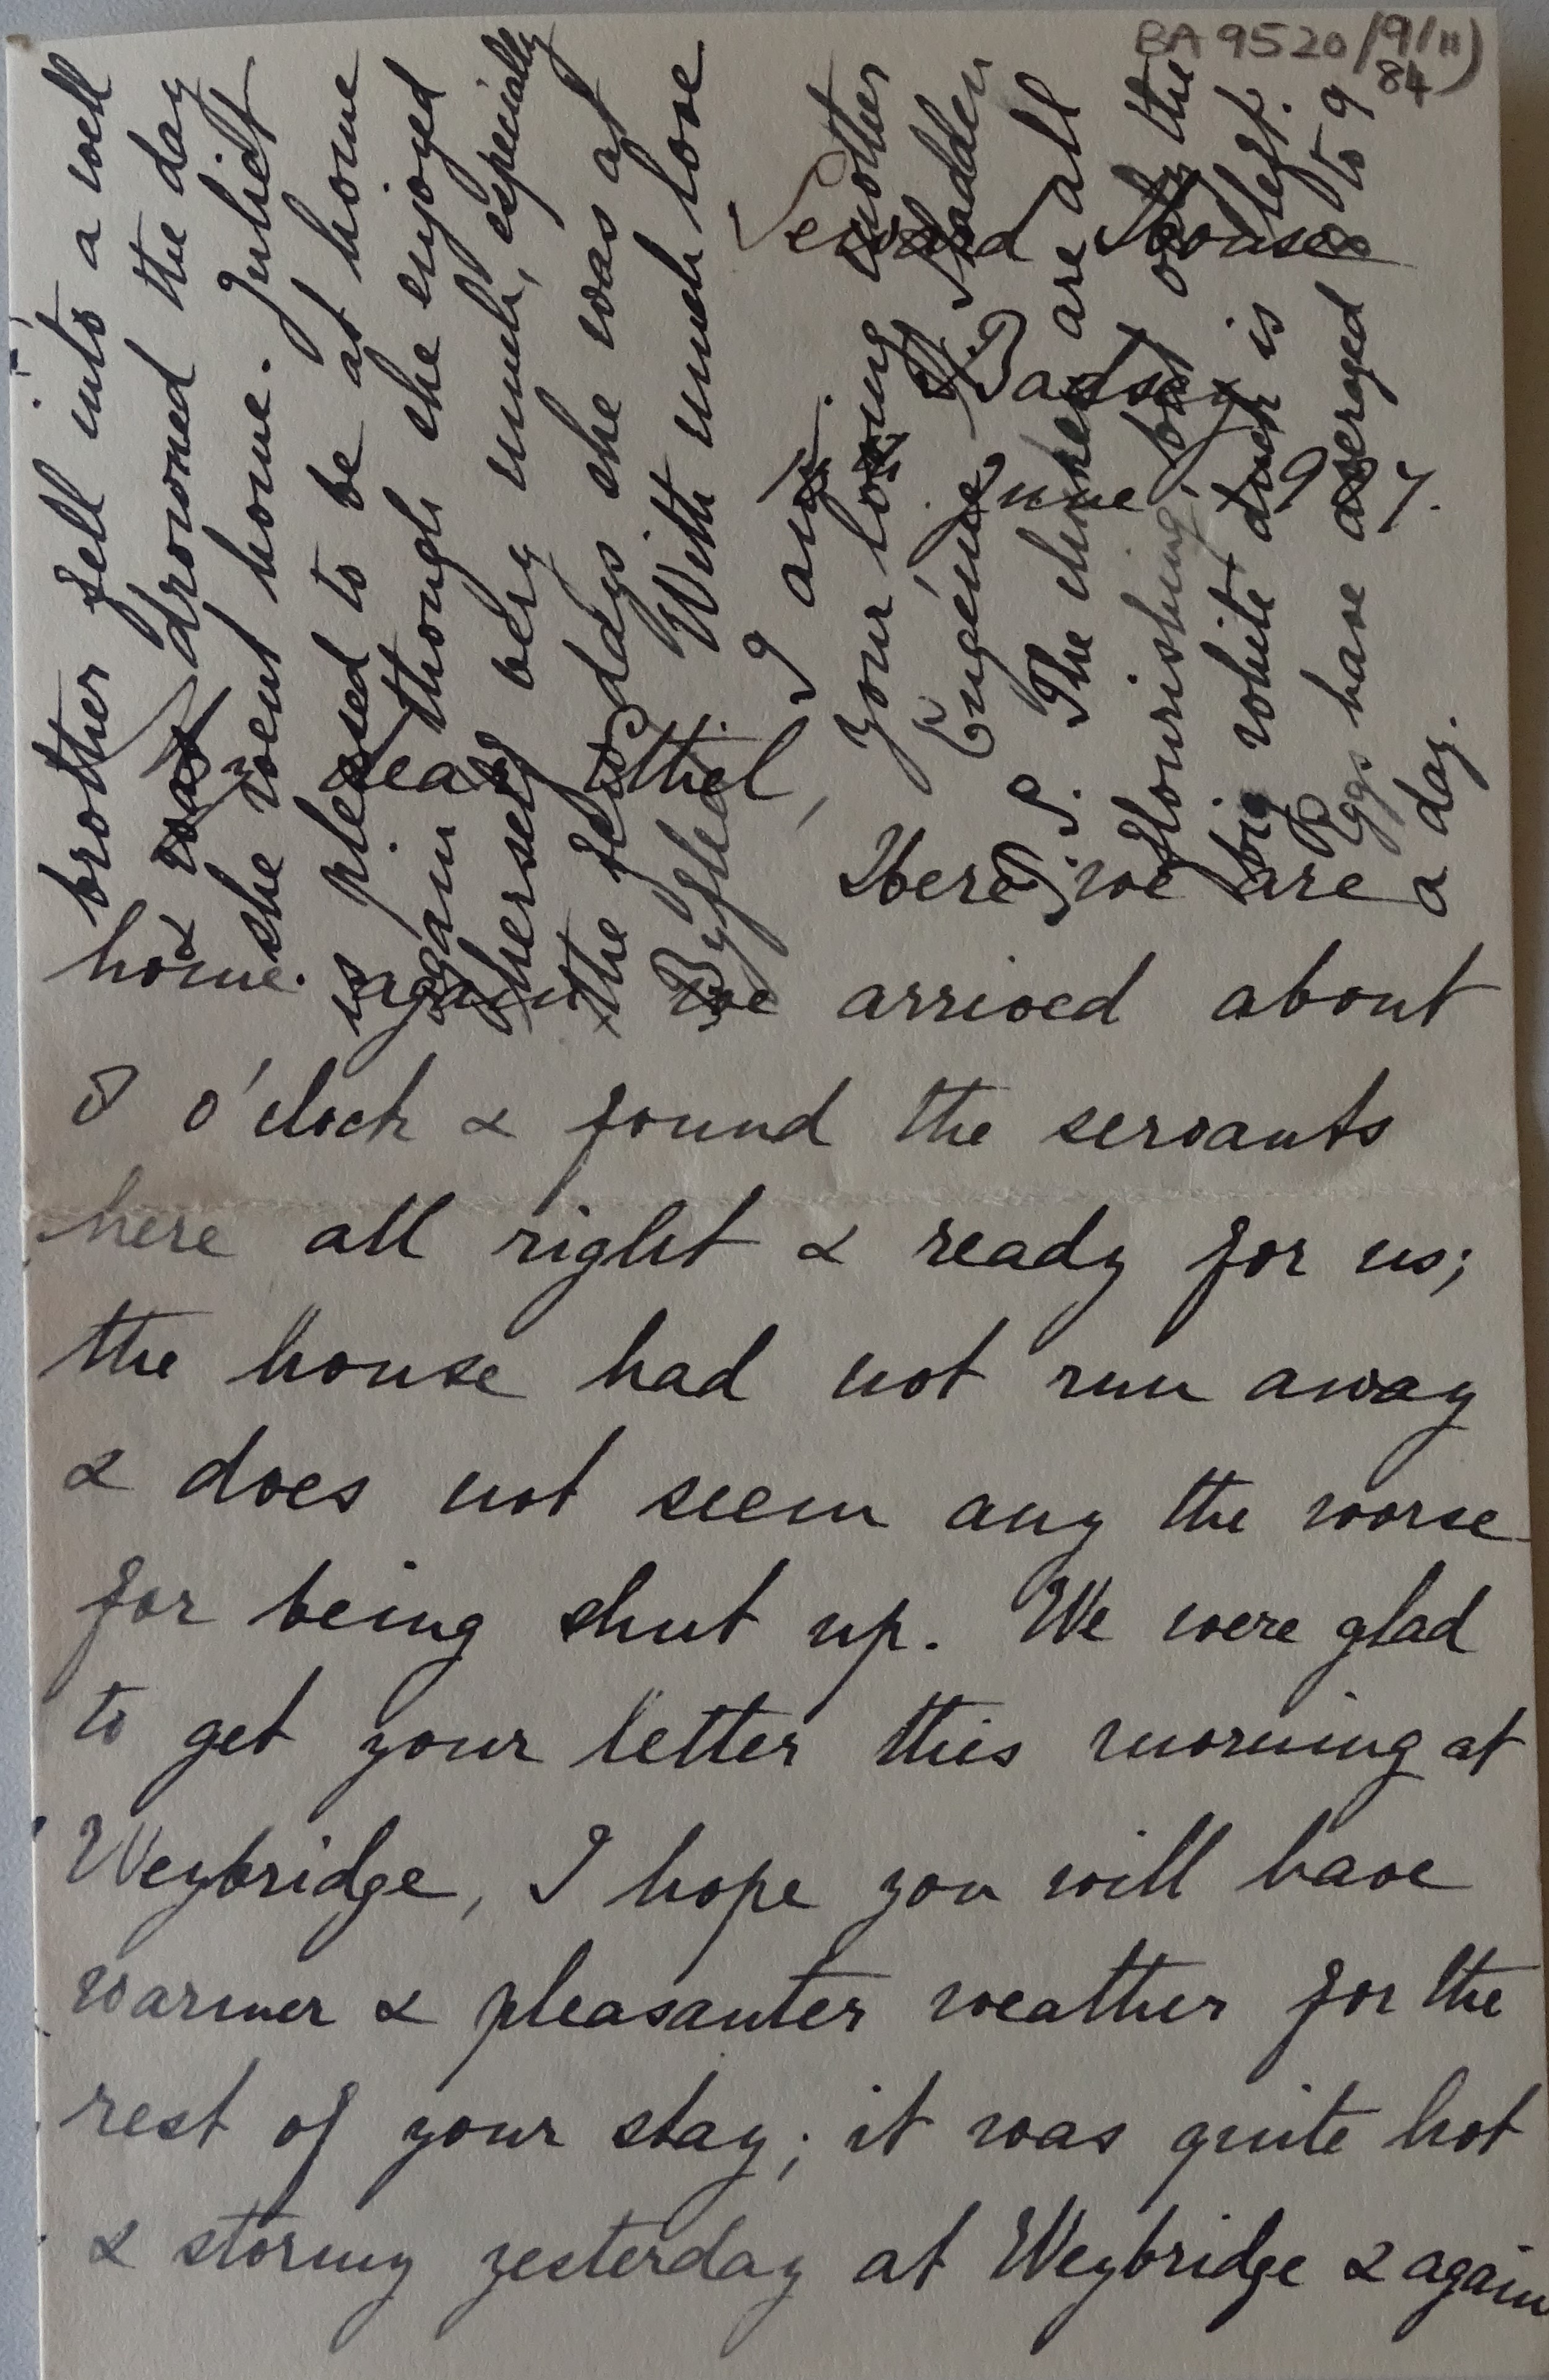 BA 9520/9/11)
84
Seward House
Badsey
June 9 7.
My dear Ethel,
Here we are
home again we arrived about
5 o'clock & found the servants
here all right & ready for us;
the house had not run away
& does not seem any the worse
for being shut up. We were glad
to get your letter this morning at
Weybridge, I hope you will have
warmer & pleasanter weather for the
rest of your stay; it was quite hot
& stormy yesterday at Weybridge & again
brother fell into a well
& was drowned the day
she went home. Juliet
is pleased to be at home
again though she enjoyed
herself very much, especially
the few days she was at
Byfleet. With much love
I am
your loving mother
Eugénie Sladden
P.S. The chickens are all
flourishing, but only the
big white duck is left.
Eggs have averaged 7 to 9
a day.